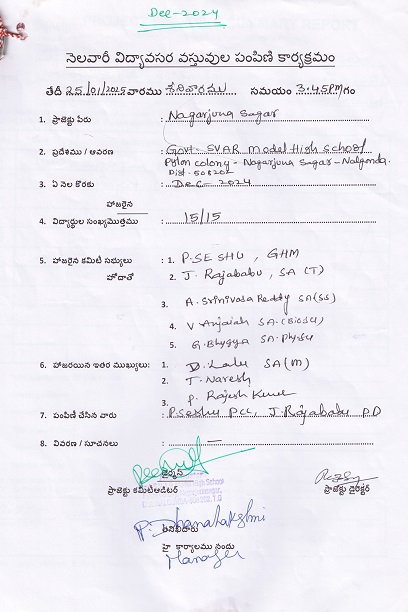 Dec-2024
నెలవారీ విద్యావసర వస్తువుల పంపిణి కార్యక్రమం
తేదీ 25/01/2025 వారము శనివారము సమయం 3:45PM గం
1. ప్రాజెక్టు పేరు : Nagarjuna Sagar
2. ప్రదేశము / ఆవరణ : Govt- SVAR Model High School
Pylon colony - Nagarjuna Sagar - Nalgonda.
Dist- 508202
3. ఏ నెల కొరకు : Dec 2024
హాజరైన
4. విద్యార్థుల సంఖ్యమొత్తము : 15/15
5. హాజరైన కమిటీ సభ్యులు : 1. P.SESHU, GHM
హోదాతో 2. J. Rajababu, SA (T)
3. A. Srinivasa Reddy SA(SS)
4. V Anjaiah SA.(BioSci)
5. G. Bhygya SA. PhySci
6. హాజరయిన ఇతర ముఖ్యులు: 1. D. Lalu SA(M)
2. T. Naresh
3. P. Rajesh Kumar
7. పంపిణి చేసిన వారు : P.Seshu PCC, J. Rajababu PD
8. వివరణ / సూచనలు : —
ఛైర్మన్
ప్రాజెక్టు కమిటీఆడిటర్ ప్రాజెక్టు డైరెక్టర్
P. Dhanalakshmi
తనిఖీదారు
హై కార్యాలము నందు
Manager